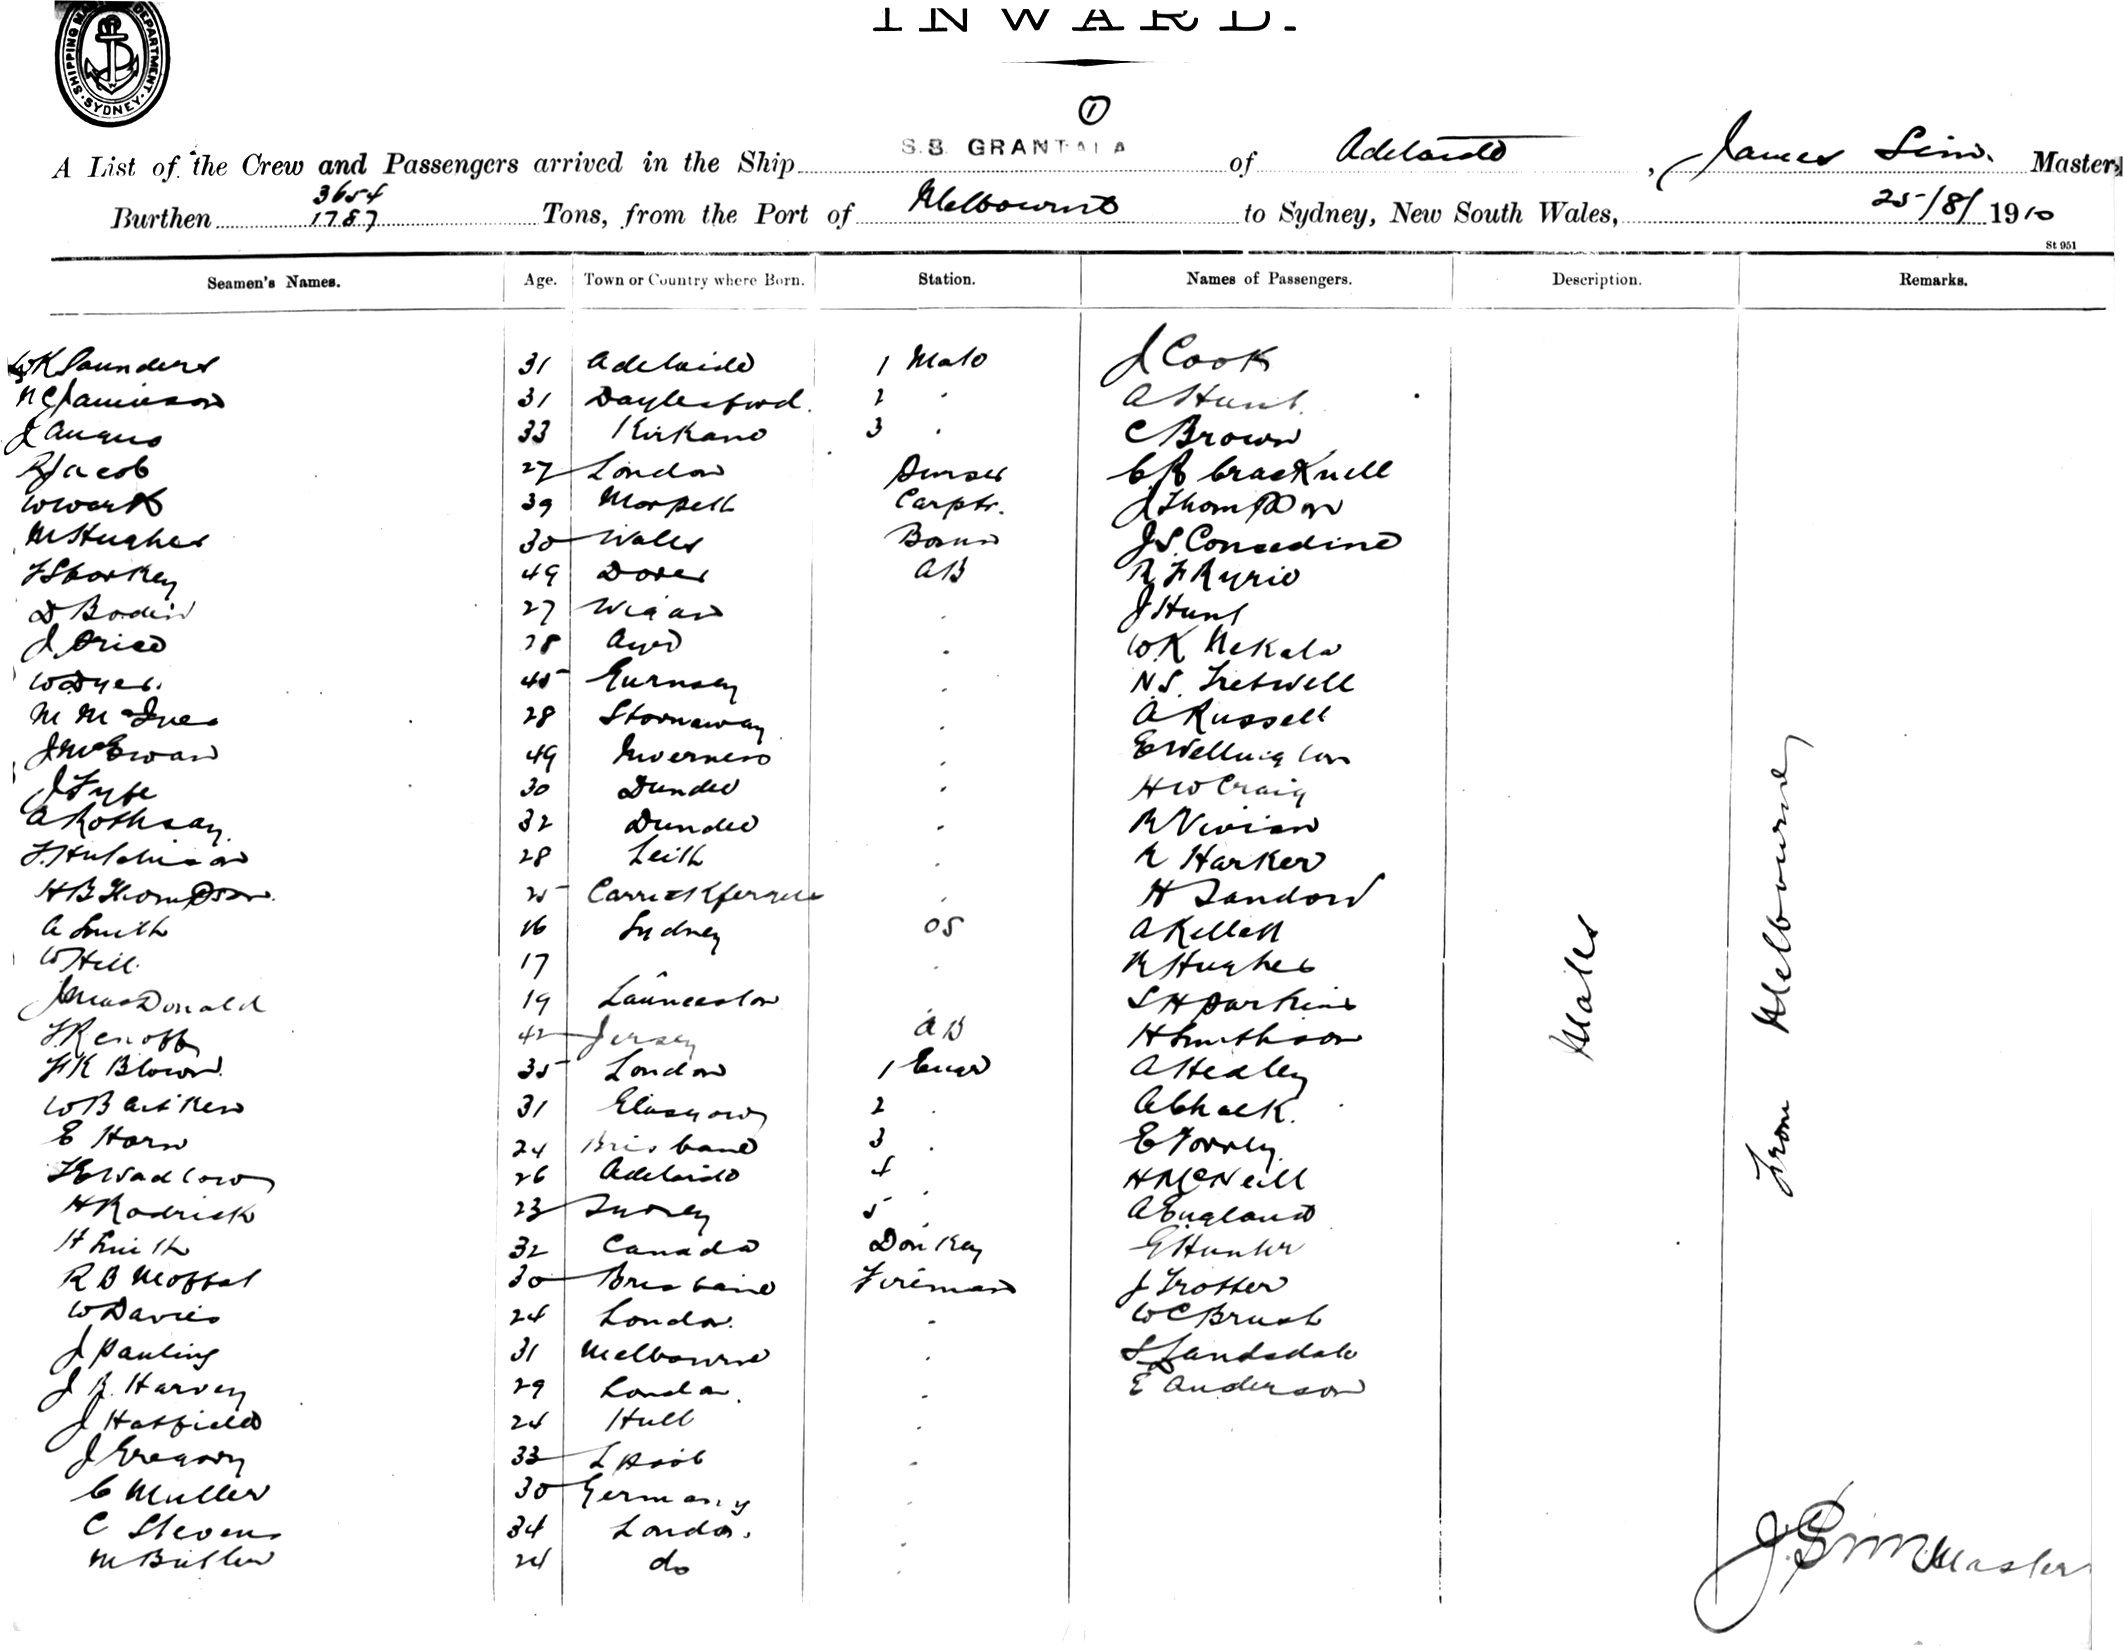 SHIPPING MASTER'S DEPARTMENT. SYDNEY.
INWARD.
1
A List of the Crew and Passengers arrived in the Ship S.S. GRANTALA of Adelaide, James Sim. Master,
3654
Burthen 1787 Tons, from the Port of Melbourne to Sydney, New South Wales, 25/8/1910
St 951
Seamen's Names. Age. Town or Country where Born. Station. Names of Passengers. Description. Remarks.
WK Saunders 31 Adelaide 1 Mate J Cook
N C Jamieson 31 Daylesford. 2 " A Hunt
J Angus 33 3 " C Brown
R Jacob 27 London Purser C R Cracknell
W Wark 39 Morpeth Carptr. J Thompson
M Hughes 30 Wales Bosun J S. Consedine
F Storkey 49 Dover AB R F Ryrie
D Bodin 27 Wigan " J Hunt
J Price 28 Ayr " W K
W Dyer. 45 Gurnsey " N.S. Tretwell
M McInes 28 Stornaway " A Russell
J McEwan 49 Inverness " E Wellington
J Fyfe 30 Dundee " H W Craig
A Rothsay. 32 Dundee " R Vivian
F. Hutchison 28 Leith " R Harker
H B Thompson. 25 Carrickfergus " H Sandow
A Smith 16 Sydney OS A Kellett
W Hill. 17 " R Hughes
J MacDonald 19 Launceston S H Parkins
F Renoff 42 Jersey AB H Smithson
F K Blown. 35 London 1 Engr A Healey
W B Aitken 31 Glasgow 2 " A Chalk.
E Horn 24 Brisbane 3 " E
F E Wadlow 26 Adelaide 4 H McNeill
H Rodrick 23 Surrey 5 " A England
H Smith 32 Canada Donkey G Hunter
R B Moffat 30 Brisbane Fireman J Trotter
W Davies 24 London. " W C Brush
J Pauling 31 Melbourne " S Landsdale
J R. Harvey 29 London. " E Anderson
J Hatfield 24 Hull "
J Gregory 33 L Pool "
C Muller 30 Germany "
C Stevens 34 London. "
M Butler 24 do "
Males
From Melbourne
J. Sim Master